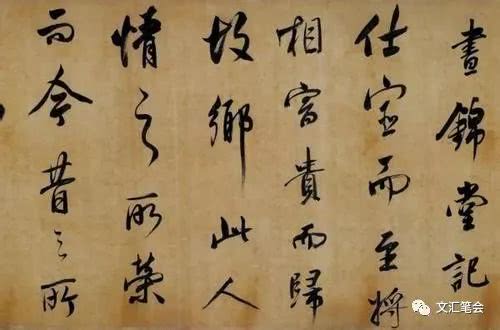 晝錦堂記
仕宦而至將
相富貴而歸
故鄉此人
情之所榮
而今昔之所
文汇笔会